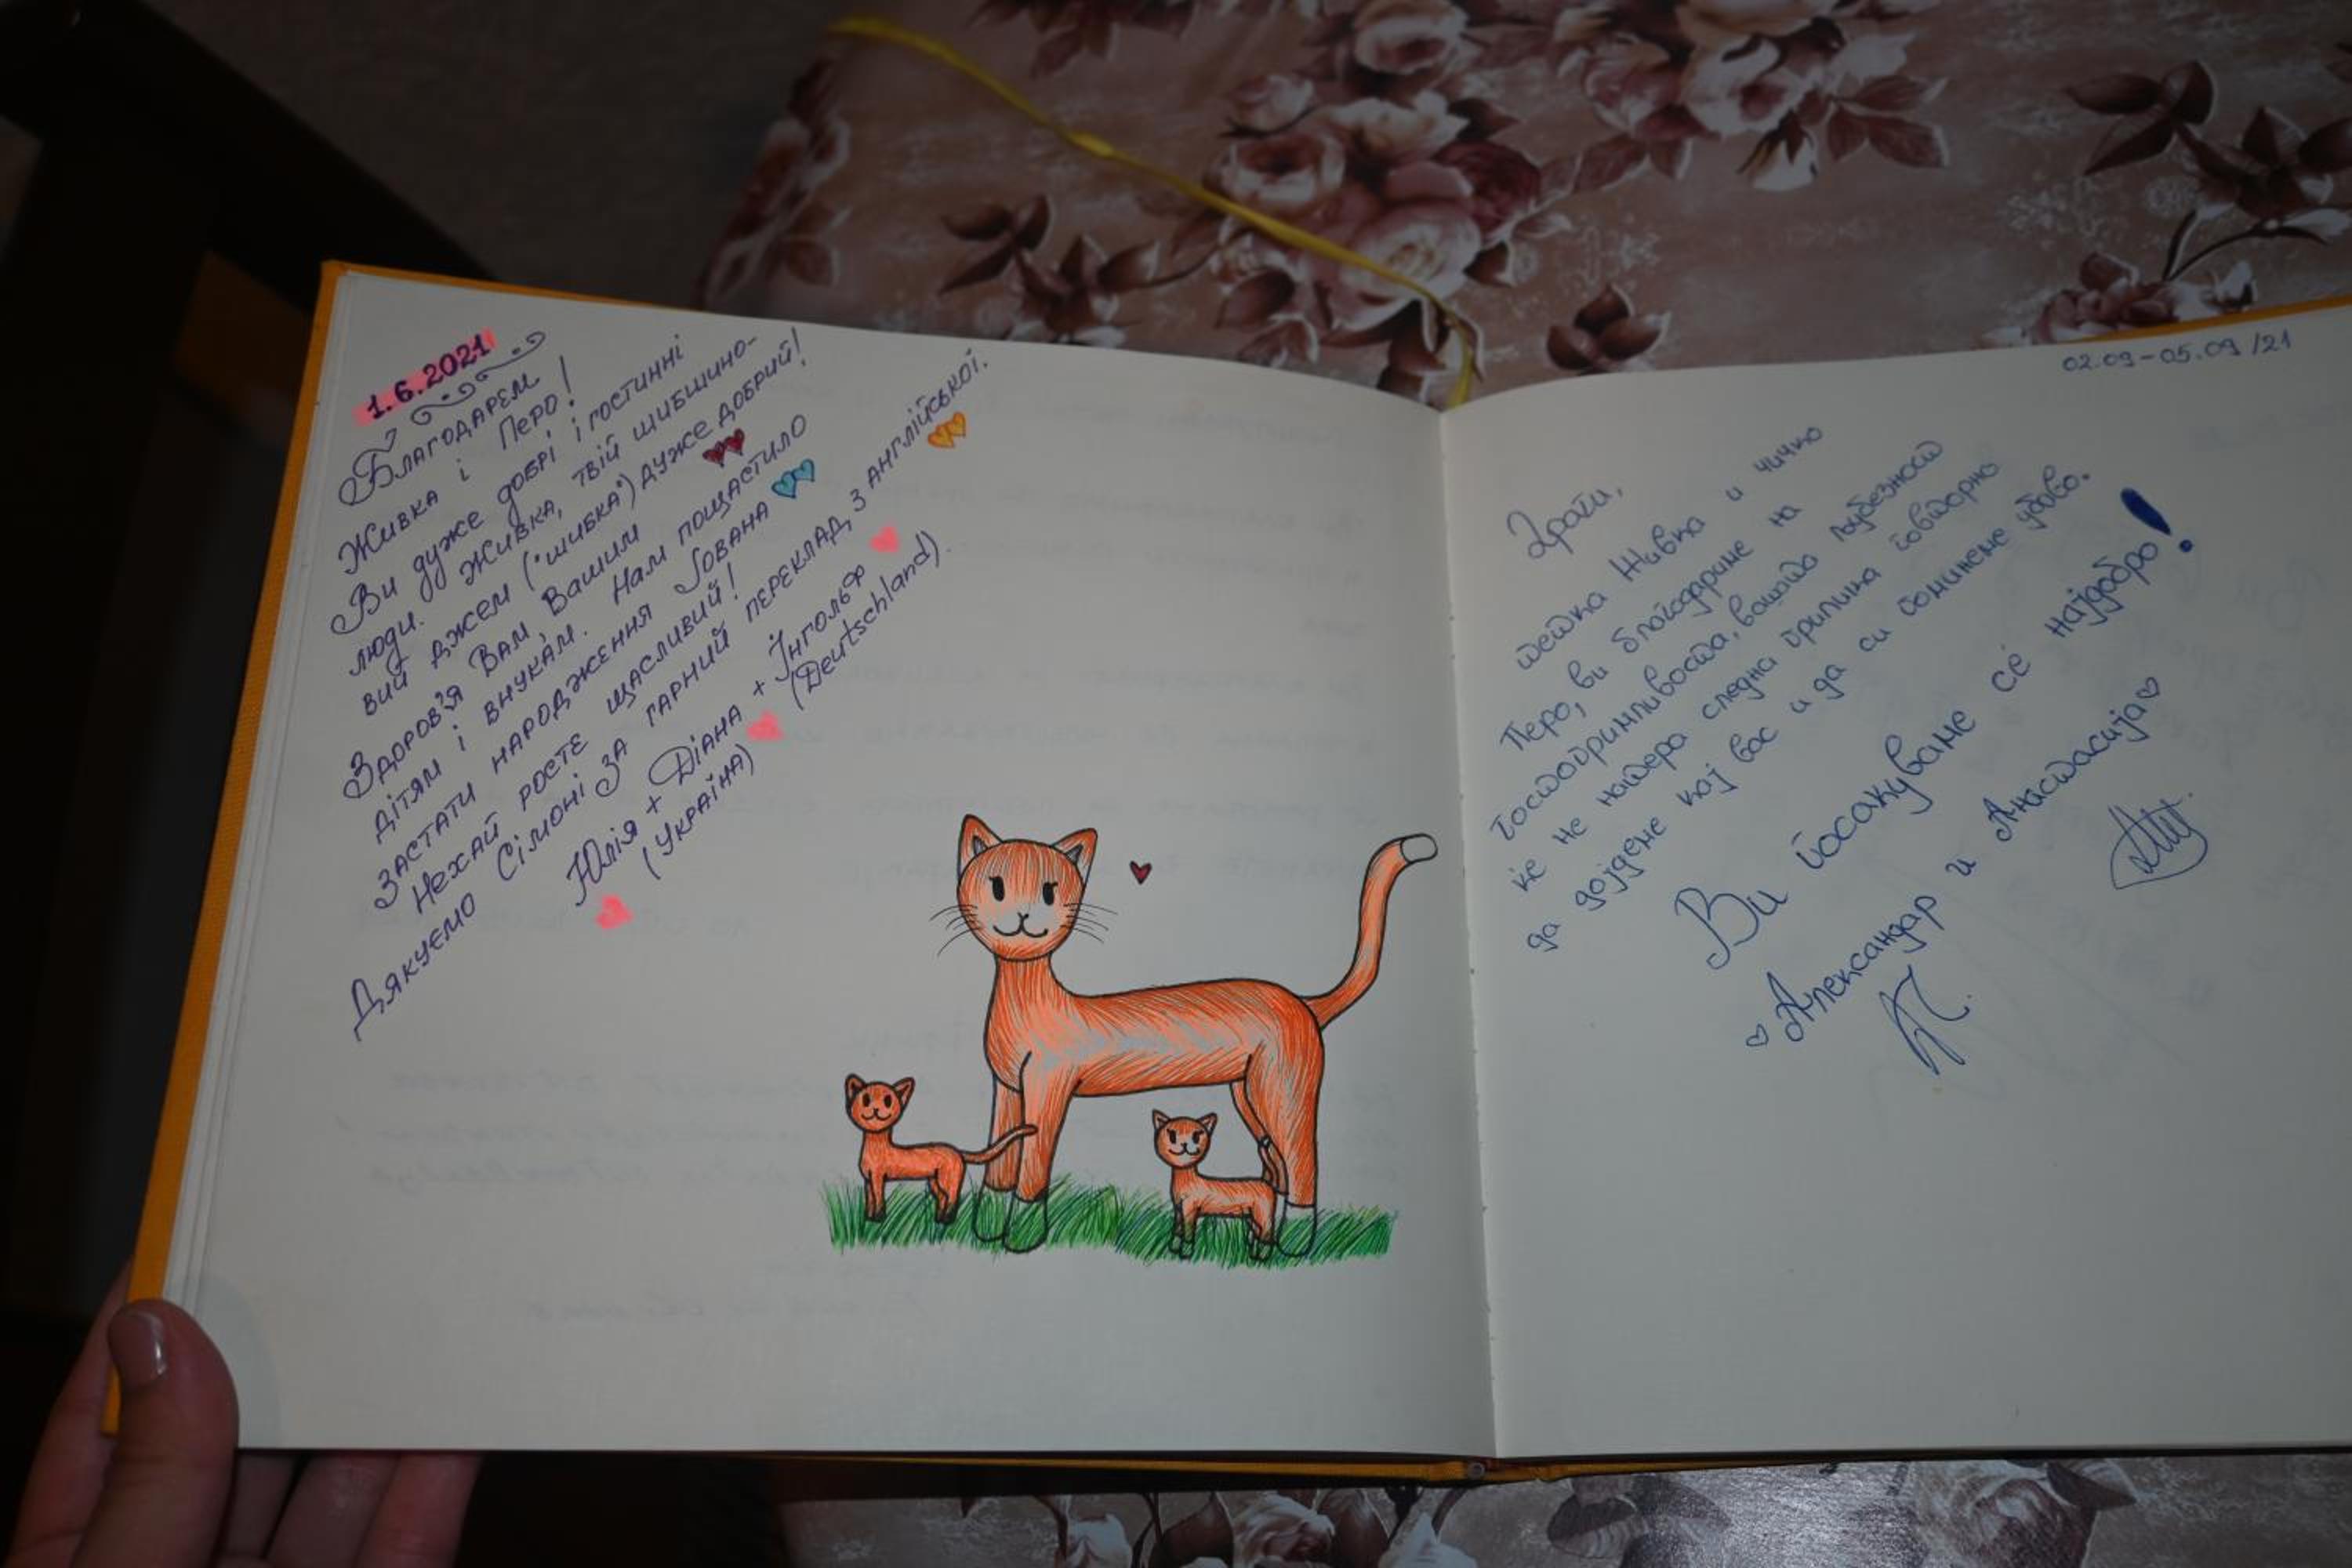 1.6.2021
Благодарем
Живка і Перо!
Ви дуже добрі і гостинні
люди. Живка, твій шибшино-
вий джем ("шибка") дуже добрий!
Здоров'я Вам, Вашим
дітям і внукам. Нам пощастило
застати народження Јована
Нехай росте щасливий!
Дякуємо Сімоні за гарний переклад з англійської.
Юлія + Діана + Інгольф
(Україна) (Deutschland).
02.09-05.09/21
Драги,
тетка Живка и чичко
Перо, ви благодариме на
гостопримливоста, вашата љубезност
ќе не натера следна прилика повторно
да дојдеме кај вас и да си поминеме убаво.
Ви посакуваме сѐ најдобро!
Александар и Анастасија